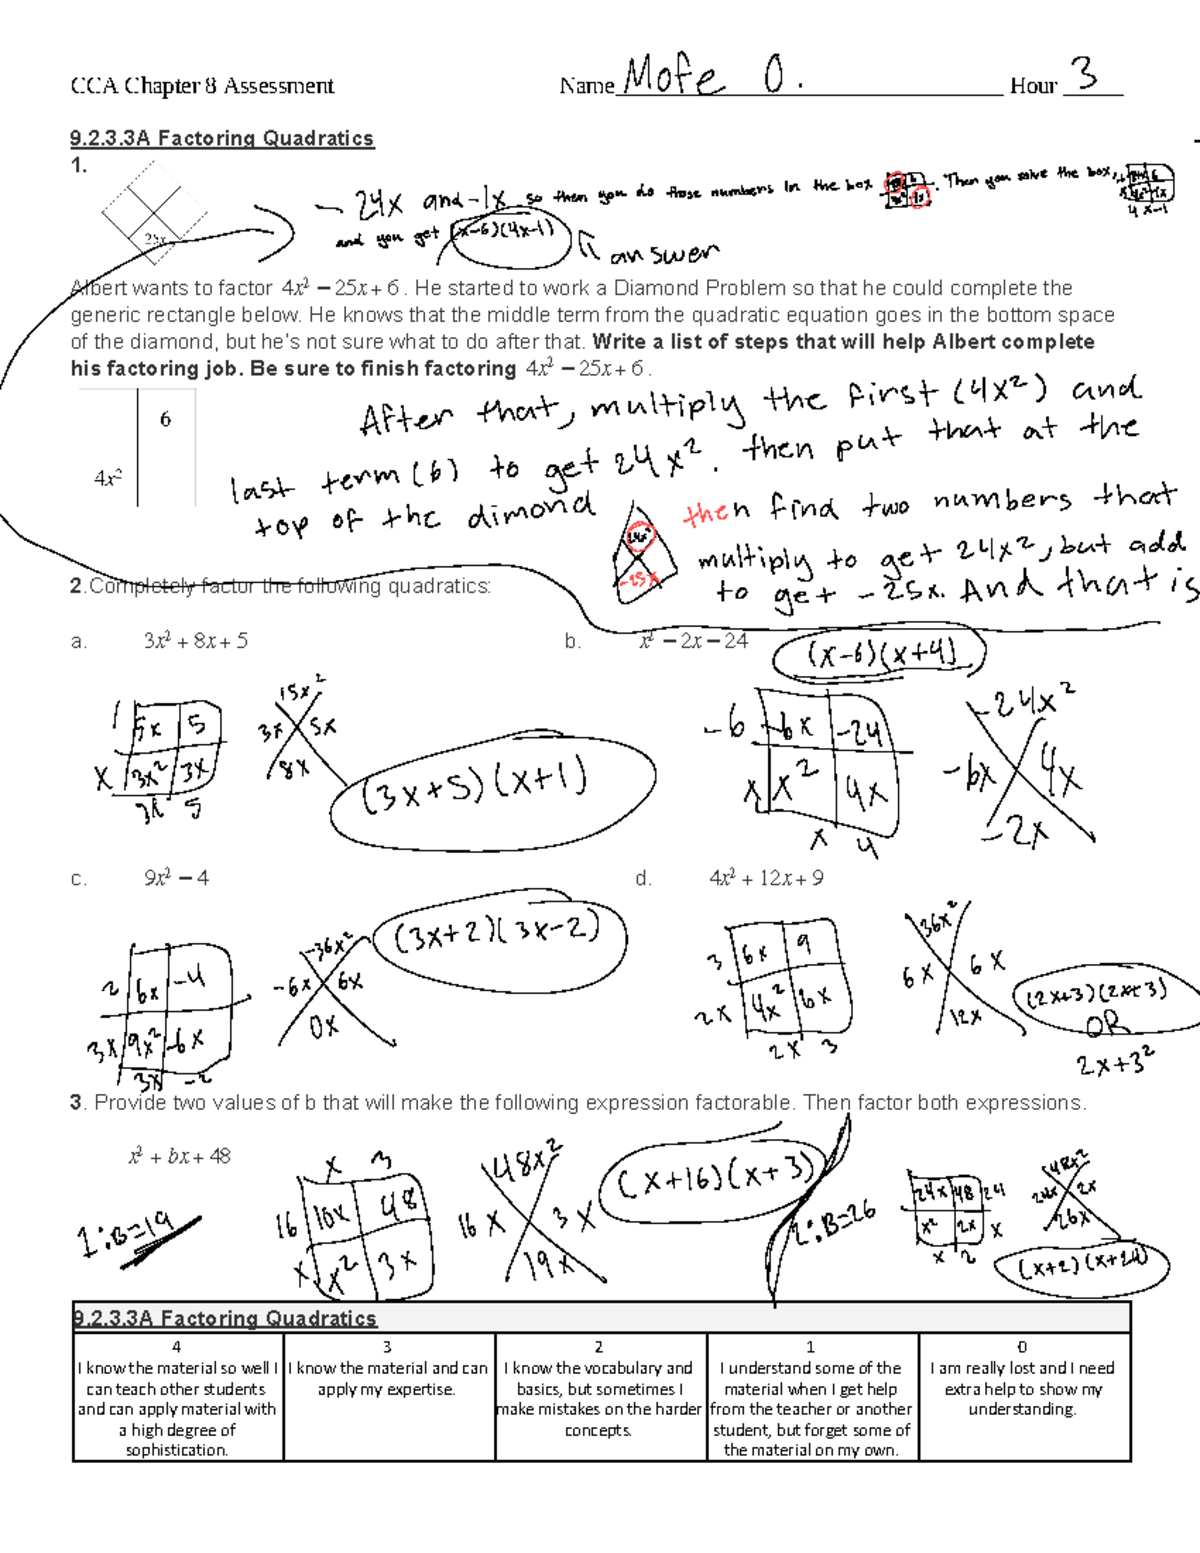 CCA Chapter 8 Assessment Name Mofe O. Hour 3
9.2.3.3A Factoring Quadratics
1.
25x
- 24x and -1x so then you do those numbers in the box . Then you solve the box,
4 x-1
and you get (x-6)(4x-1)
answer
Albert wants to factor 4x² − 25x + 6 . He started to work a Diamond Problem so that he could complete the
generic rectangle below. He knows that the middle term from the quadratic equation goes in the bottom space
of the diamond, but he's not sure what to do after that. Write a list of steps that will help Albert complete
his factoring job. Be sure to finish factoring 4x² − 25x + 6 .
6
4x²
After that, multiply the first (4x²) and
last term (6) to get 24x². then put that at the
top of the dimond
24x²
-25x
then find two numbers that
multiply to get 24x², but add
to get -25x. And that is
2.Completely factor the following quadratics:
a. 3x² + 8x + 5 b. x² − 2x − 24 (x-6)(x+4)
1 5x 5
x 3x² 3x
3x 5
15x²
3x 5x
8x
(3x+5)(x+1)
-6 -6x -24
x x² 4x
x 4
-24x²
-6x 4x
-2x
c. 9x² − 4 d. 4x² + 12x + 9
2 6x -4
3x 9x² -6x
3x -2
-36x²
-6x 6x
0x
(3x+2)(3x-2)
3 6x 9
2x 4x² 6x
2x 3
36x²
6x 6x
12x
(2x+3)(2x+3)
OR
2x+3²
3. Provide two values of b that will make the following expression factorable. Then factor both expressions.
x² + bx + 48
1: B=19
x 3
16 16x 48
x x² 3x
48x²
16x 3x
19x
(x+16)(x+3)
2: B=26
24x 48 24
x² 2x x
x 2
48x²
24x 2x
26x
(x+2)(x+24)
9.2.3.3A Factoring Quadratics
4 3 2 1 0
I know the material so well I I know the material and can I know the vocabulary and I understand some of the I am really lost and I need
can teach other students apply my expertise. basics, but sometimes I material when I get help extra help to show my
and can apply material with make mistakes on the harder from the teacher or another understanding.
a high degree of concepts. student, but forget some of
sophistication. the material on my own.